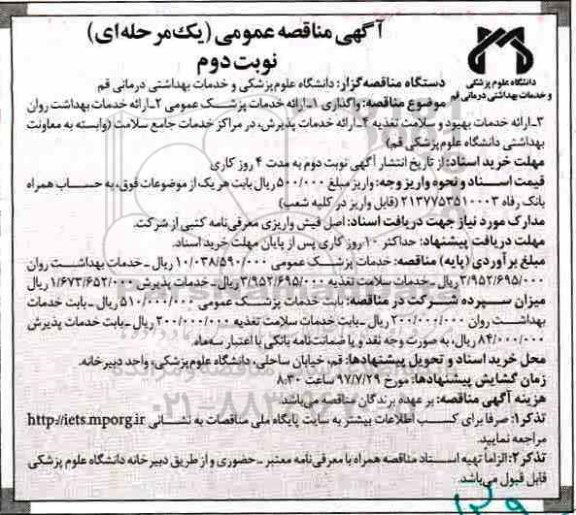 آگهی مناقصه عمومی (یک مرحله‌ای)
نوبت دوم
دانشگاه علوم پزشکی
و خدمات بهداشتی درمانی قم
دستگاه مناقصه‌گزار: دانشگاه علوم پزشکی و خدمات بهداشتی درمانی قم
موضوع مناقصه: واگذاری ۱ـ ارائه خدمات پزشک عمومی ۲ـ ارائه خدمات بهداشت روان
۳ـ ارائه خدمات بهبود و سلامت تغذیه ۴ـ ارائه خدمات پذیرش، در مراکز خدمات جامع سلامت (وابسته به معاونت
بهداشتی دانشگاه علوم پزشکی قم)
مهلت خرید اسناد: از تاریخ انتشار آگهی نوبت دوم به مدت ۴ روز کاری
قیمت اسناد و نحوه واریز وجه: واریز مبلغ ۵۰۰/۰۰۰ ریال بابت هر یک از موضوعات فوق، به حساب همراه
بانک رفاه ۲۱۳۷۷۵۳۵۱۰۰۰۳ (قابل واریز در کلیه شعب)
مدارک مورد نیاز جهت دریافت اسناد: اصل فیش واریزی معرفی‌نامه کتبی از شرکت.
مهلت دریافت پیشنهاد: حداکثر ۱۰ روز کاری پس از پایان مهلت خرید اسناد.
مبلغ برآوردی (پایه) مناقصه: خدمات پزشک عمومی ۱۰/۰۳۸/۵۹۰/۰۰۰ ریال ـ خدمات بهداشت روان
۳/۹۵۲/۶۹۵/۰۰۰ ریال ـ خدمات سلامت تغذیه ۳/۹۵۲/۶۹۵/۰۰۰ ریال ـ خدمات پذیرش ۱/۶۷۳/۶۵۲/۰۰۰ ریال
میزان سپرده شرکت در مناقصه: بابت خدمات پزشک عمومی ۵۱۰/۰۰۰/۰۰۰ ریال ـ بابت خدمات
بهداشت روان ۲۰۰/۰۰۰/۰۰۰ ریال ـ بابت خدمات سلامت تغذیه ۲۰۰/۰۰۰/۰۰۰ ریال ـ بابت خدمات پذیرش
۸۴/۰۰۰/۰۰۰ ریال، به صورت وجه نقد و یا ضمانت‌نامه بانکی با اعتبار سه ماه.
محل خرید اسناد و تحویل پیشنهادها: قم، خیابان ساحلی، دانشگاه علوم پزشکی، واحد دبیرخانه.
زمان گشایش پیشنهادها: مورخ ۹۷/۷/۲۹ ساعت ۸:۳۰
هزینه آگهی مناقصه: بر عهده برندگان مناقصه می‌باشد.
تذکر۱: صرفا برای کسب اطلاعات بیشتر به سایت پایگاه ملی مناقصات به نشانی http://iets.mporg.ir
مراجعه نمایید.
تذکر۲: الزاماً تهیه اسناد مناقصه همراه با معرفی‌نامه معتبر ـ حضوری و از طریق دبیرخانه دانشگاه علوم پزشکی
قابل قبول می‌باشد.